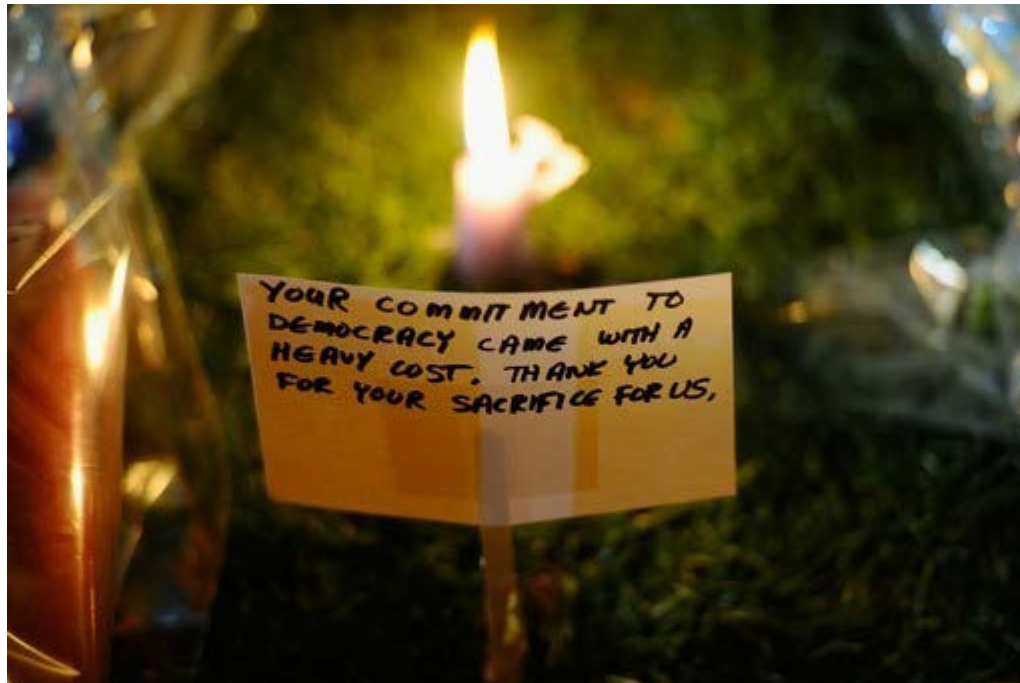 YOUR COMMITMENT TO
DEMOCRACY CAME WITH A
HEAVY COST. THANK YOU
FOR YOUR SACRIFICE FOR US.